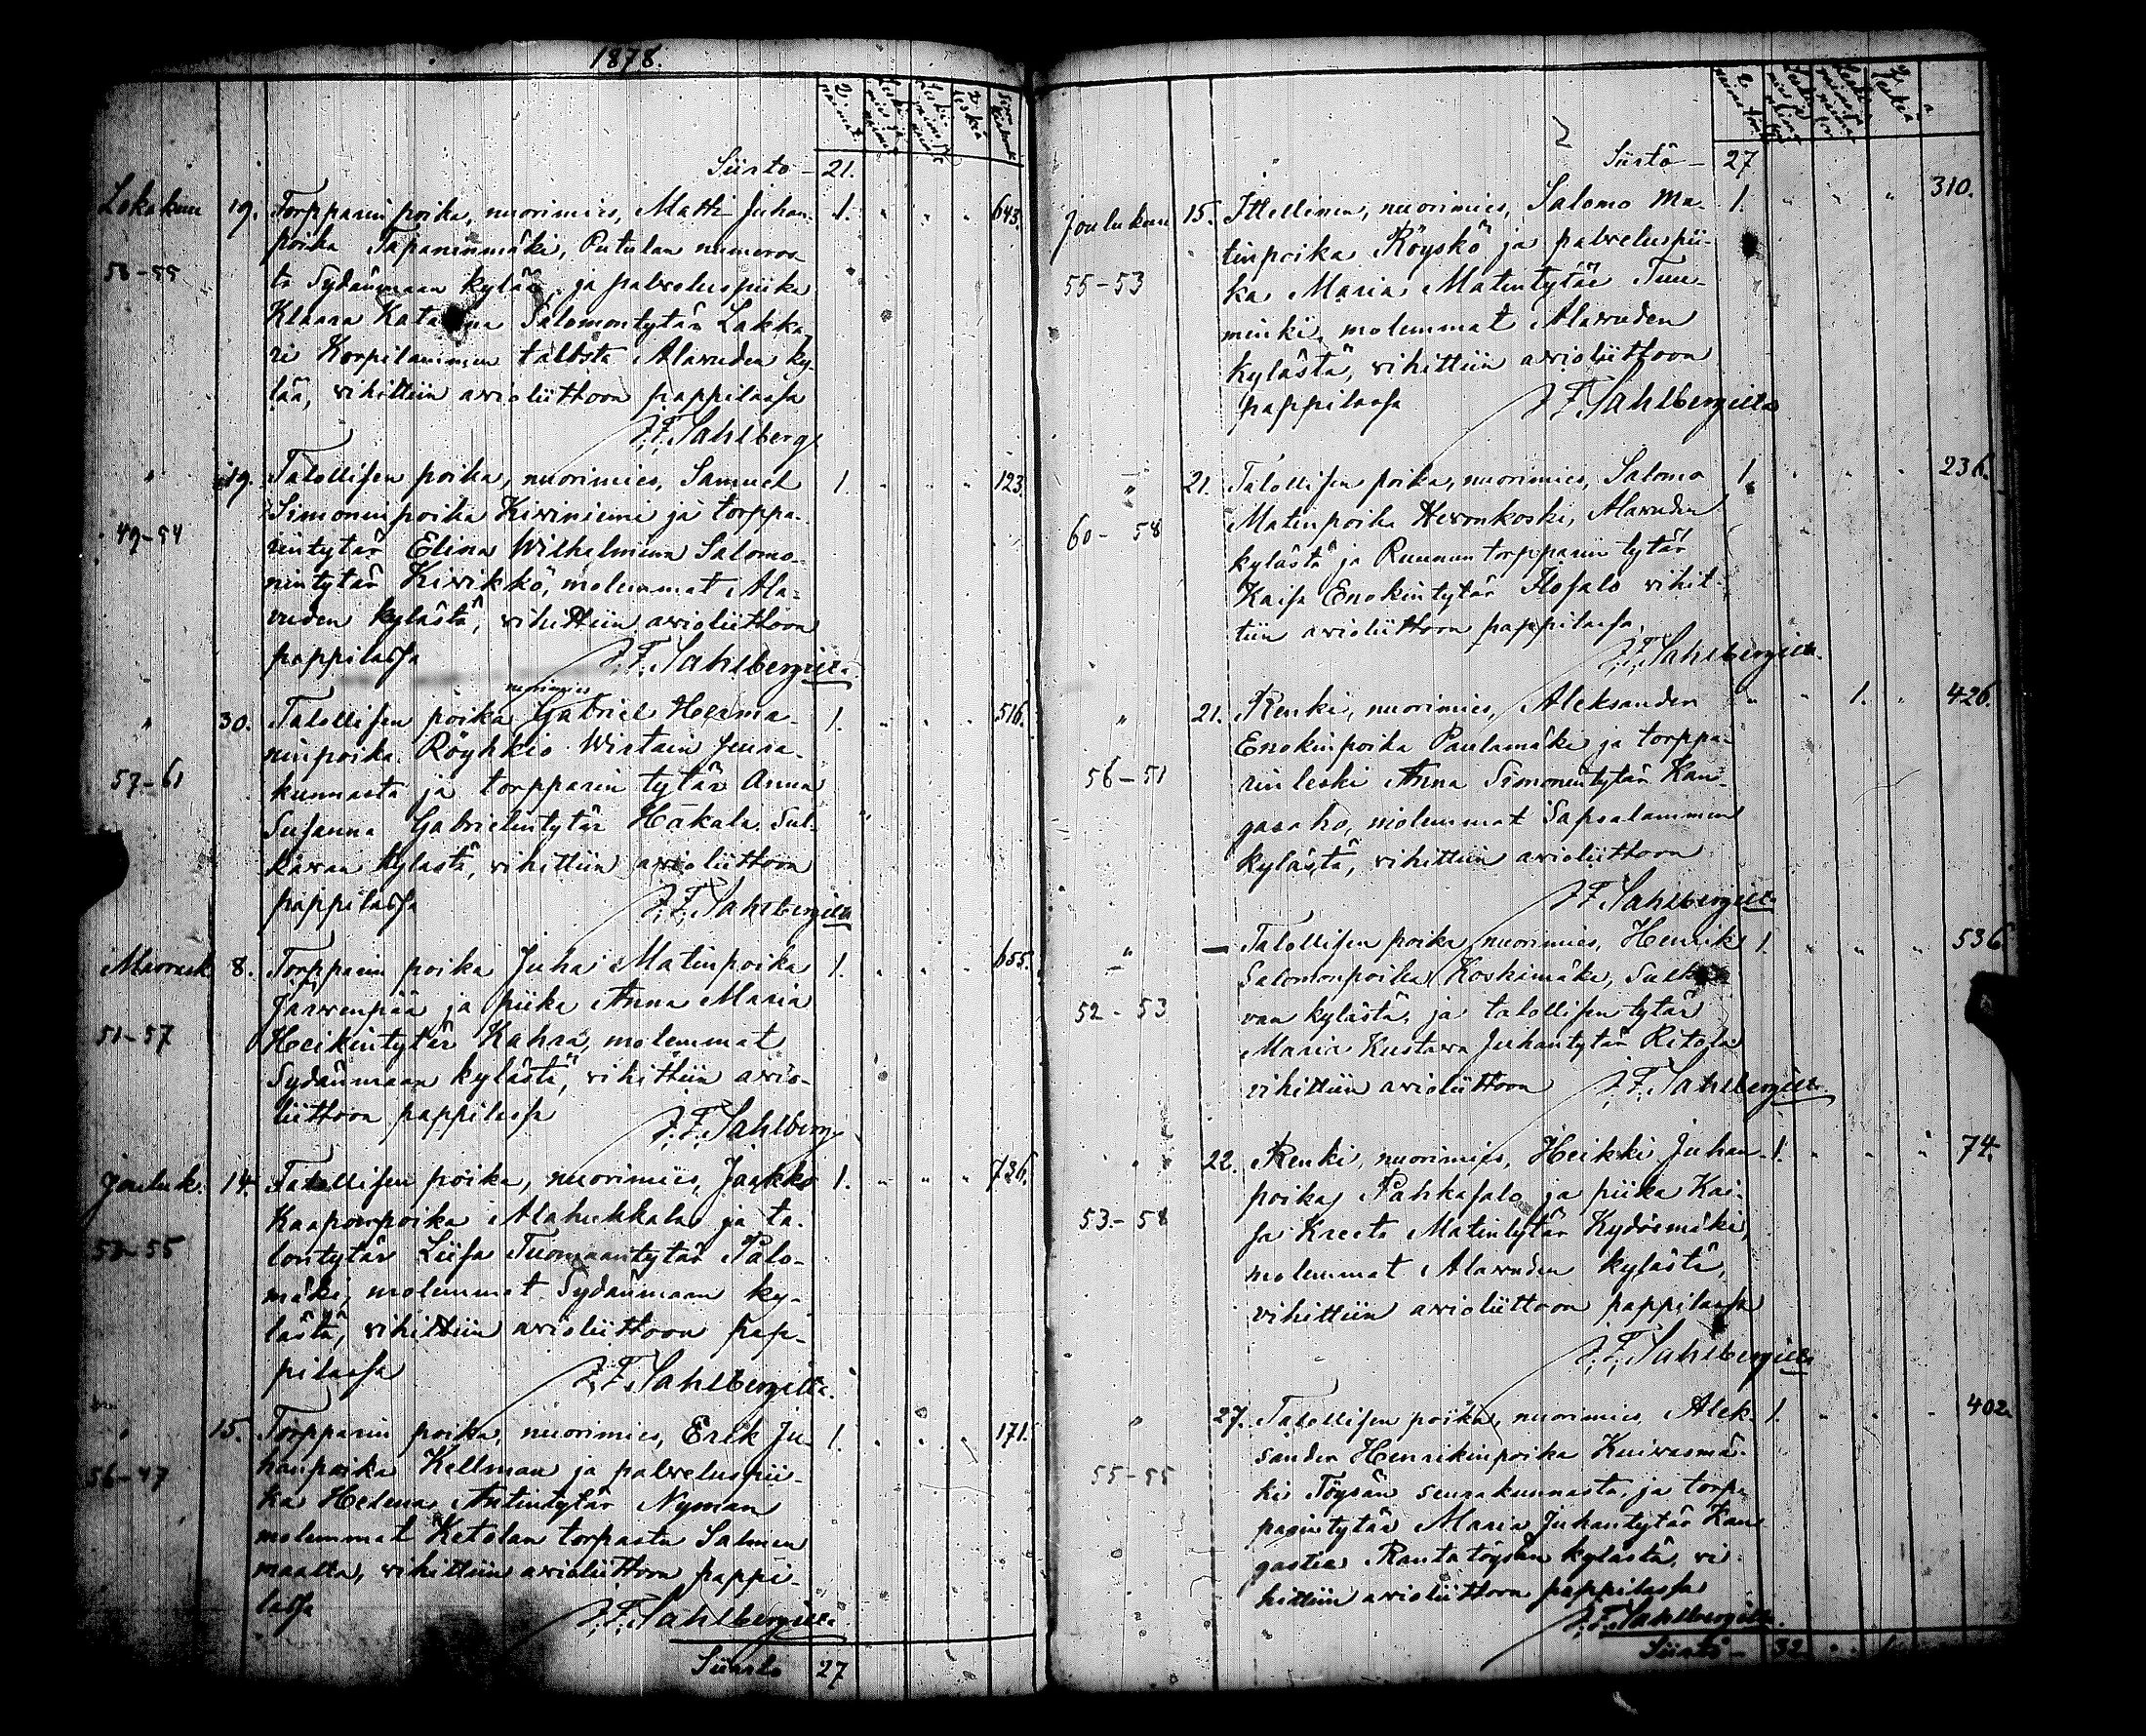 1878.
Siirto - 21.
Lokakuu 19. Torpparin poika, nuorimies, Matti Juhan- 1. " " " 643.
poika Tapaninmäki, Putulan numeros-
58-55 ta Sydänmaan kylää ja palveluspiika
Klaara Katariina Salomontytär Lakka-
ri Korpilammen talosta Alavuden ky-
lää, vihittiin avioliittoon pappilassa
J. F. Sahlberg
" 19. Talollisen poika, nuorimies, Samuel 1. " " " 123.
Simoninpoika Kiviniemi ja torppa-
49-54 rintytär Elina Wilhelmina Salomo-
nintytär Kivikkö, molemmat Ala-
vuden kylästä, vihittiin avioliittoon
pappilassa J. F. Sahlbergilta
nuorimies
" 30. Talollisen poika Gabriel Herma- 1. " " " 516.
ninpoika Röyhkiö Wirtain seura-
57-61 kunnasta ja torpparin tytär Anna
Susanna Gabrielintytär Hakala Sul-
kavan kylästä, vihittiin avioliittoon
pappilassa J. F. Sahlbergilta
Marrask. 8. Torpparin poika Juha Matinpoika 1. " " " 655.
Järvenpää ja piika Anna Maria
51-57 Heikintytär Kahra, molemmat
Sydänmaan kylästä, vihittiin avio-
liittoon pappilassa
J. F. Sahlberg
Jouluk. 14. Talollisen poika, nuorimies, Jaakko 1. " " " 736.
Kaaponpoika Alahukkala ja ta-
53-55 lontytär Liisa Tuomaantytär Palo-
mäki, molemmat Sydänmaan ky-
lästä, vihittiin avioliittoon pap-
pilassa J. F. Sahlbergilta.
" 15. Torpparin poika, nuorimies, Erik Ju- 1. " " " 171.
hanpoika Kellman ja palveluspii-
56-47 ka Helena Antintytär Nyman
molemmat Ketolan torpasta Salmen
maalta, vihittiin avioliittoon pappi-
lassa J. F. Sahlbergilta
Siirto 27
Siirto - 27
Joulukuu 15. Itsellinen, nuorimies, Salomo Ma- 1. " " " 310.
tinpoika Röyskö ja palveluspii-
55-53 ka Maria Matintytär Tuu-
minki, molemmat Alavuden
kylästä, vihittiin avioliittoon
pappilassa J. F. Sahlbergilta
" 21. Talollisen poika, nuorimies, Salomo 1. " " " 236.
Matinpoika Hevonkoski, Alavuden
60-58 kylästä ja Ruunun torpparin tytär
Kaisa Enokintytär Ilosalo vihit-
tiin avioliittoon pappilassa.
J. F. Sahlbergilta.
" 21. Renki, nuorimies, Aleksander " " 1. " 426.
Enokinpoika Paulamäki ja torppa-
56-51 rin leski Anna Simonintytär Kan-
gasaho, molemmat Sapsalammen
kylästä, vihittiin avioliittoon
J. F. Sahlbergilta
" — Talollisen poika, nuorimies, Henrik 1. " " " 536
Salomonpoika Koskimäki, Sulka-
52-53 van kylästä, ja talollisen tytär
Maria Kustava Juhantytär Ritola
vihittiin avioliittoon J. F. Sahlbergilta
" 22. Renki, nuorimies, Heikki Juhan- 1. " " " 74.
poika Pahkasalo ja piika Kai-
53-58 sa Kreeta Matintytär Kydösmäki,
molemmat Alavuden kylästä,
vihittiin avioliittoon pappilassa
J. F. Sahlbergilta
" 27. Talollisen poika, nuorimies Alek- 1. " " " 402.
sander Henrikinpoika Kuivasmä-
55-55 ki Töysän seurakunnasta, ja torp-
parintytär Maria Juhantytär Kan-
gastie Rantatöysän kylästä, vi-
hittiin avioliittoon pappilassa
J. F. Sahlbergilta.
Siirto - 32